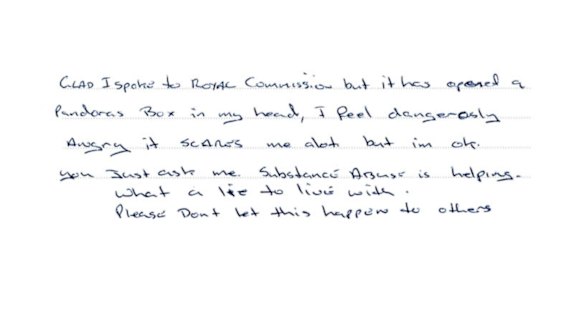 GLAD I spoke to ROYAL Commission but it has opened a
Pandoras Box in my head, I feel dangerosly
Angry it SCARES me alot but im ok.
you Just ask me. Substance Abuse is helping.
What a lie to live with.
Please Dont let this happen to others